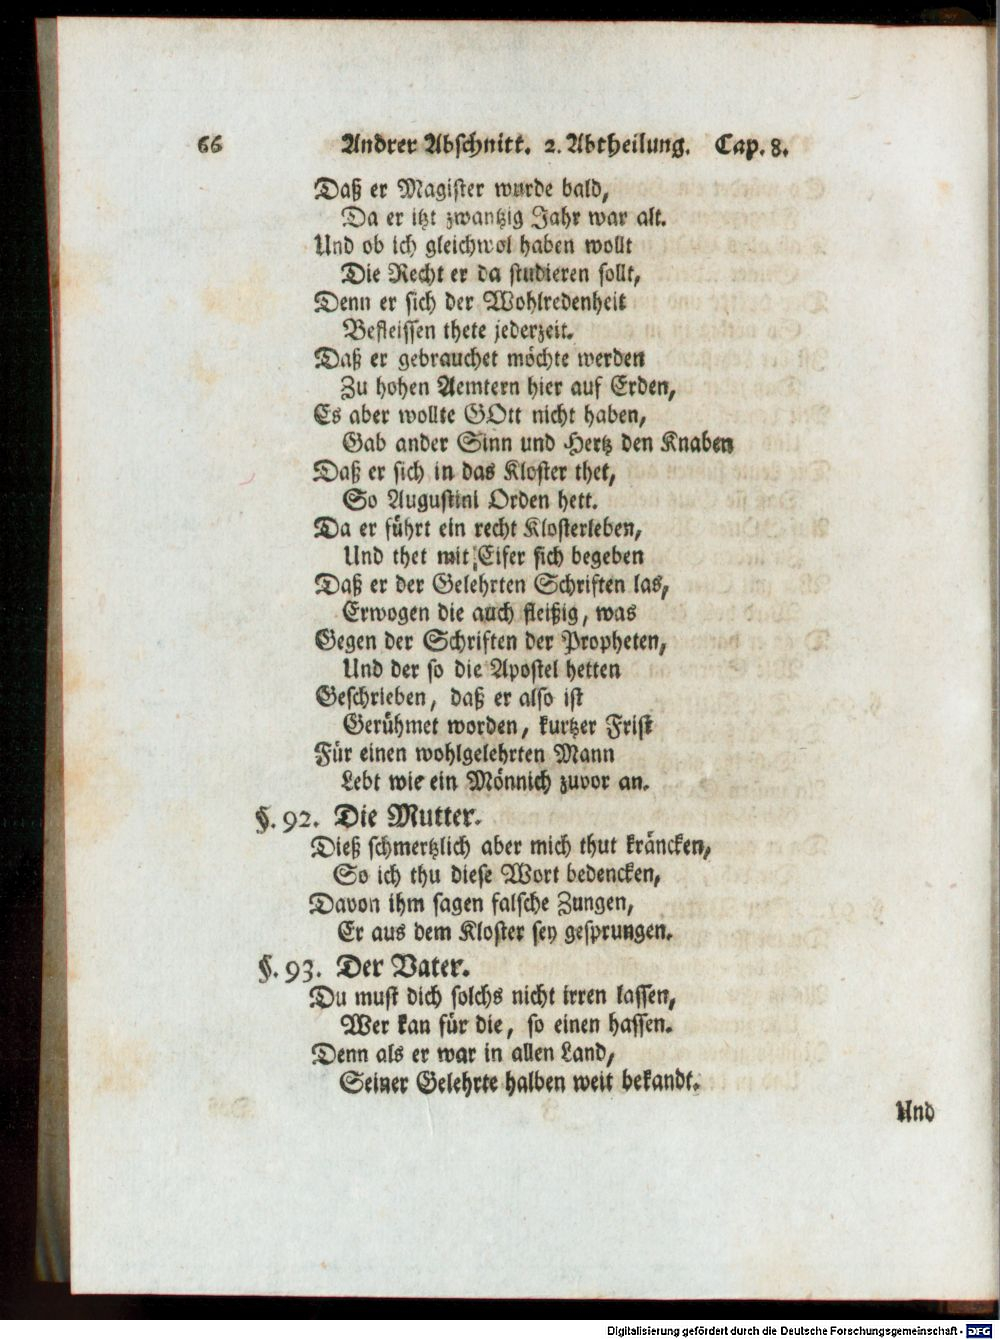 66 Andrer Abschnitt. 2. Abtheilung. Cap. 8.
Daß er Magister wurde bald,
Da er itzt zwantzig Jahr war alt.
Und ob ich gleichwol haben wollt
Die Recht er da studieren sollt,
Denn er sich der Wohlredenheit
Befleissen thete jederzeit.
Daß er gebrauchet möchte werden
Zu hohen Aemtern hier auf Erden,
Es aber wollte GOtt nicht haben,
Gab ander Sinn und Hertz den Knaben
Daß er sich in das Kloster thet,
So Augustini Orden hett.
Da er führt ein recht Klosterleben,
Und thet mit Eifer sich begeben
Daß er der Gelehrten Schriften las,
Erwogen die auch fleißig, was
Gegen der Schriften der Propheten,
Und der so die Apostel hetten
Geschrieben, daß er also ist
Gerühmet worden, kurtzer Frist
Für einen wohlgelehrten Mann
Lebt wie ein Mönnich zuvor an.
§. 92. Die Mutter.
Dieß schmertzlich aber mich thut kräncken,
So ich thu diese Wort bedencken,
Davon ihm sagen falsche Zungen,
Er aus dem Kloster sey gesprungen.
§. 93. Der Vater.
Du must dich solchs nicht irren lassen,
Wer kan für die, so einen hassen.
Denn als er war in allen Land,
Seiner Gelehrte halben weit bekandt.
Und
Digitalisierung gefördert durch die Deutsche Forschungsgemeinschaft - DFG